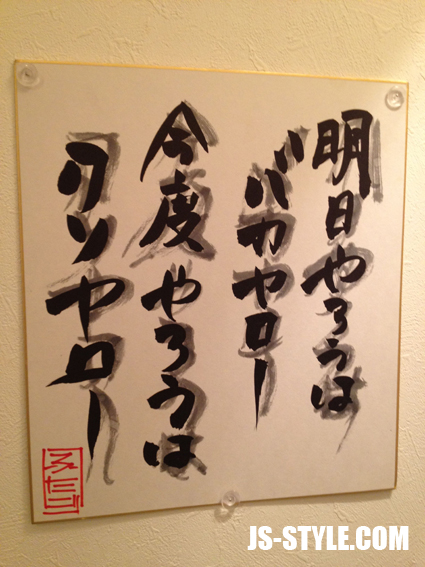 明日やろうは
バカヤロー
今度やろうは
クソヤロー
JS-STYLE.COM